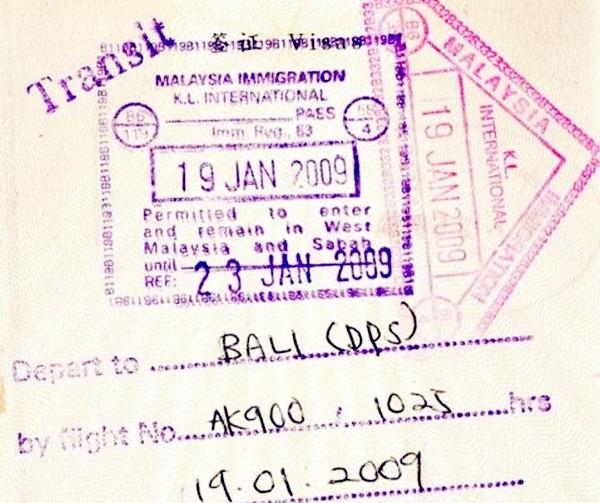 Transit
签证 Visas
MALAYSIA IMMIGRATION
K.L. INTERNATIONAL
PAES
B6
119
Imm. Reg., 63
4
19 JAN 2009
Permitted to enter
and remain in West
Malaysia and Sabah
until
REF: 23 JAN 2009
MALAYSIA
K.L
INTERNATIONAL
19 JAN 2009
IMMIGRATION
Depart to BALI (DPS)
by flight No. AK900, 1025 hrs
19.01.2009